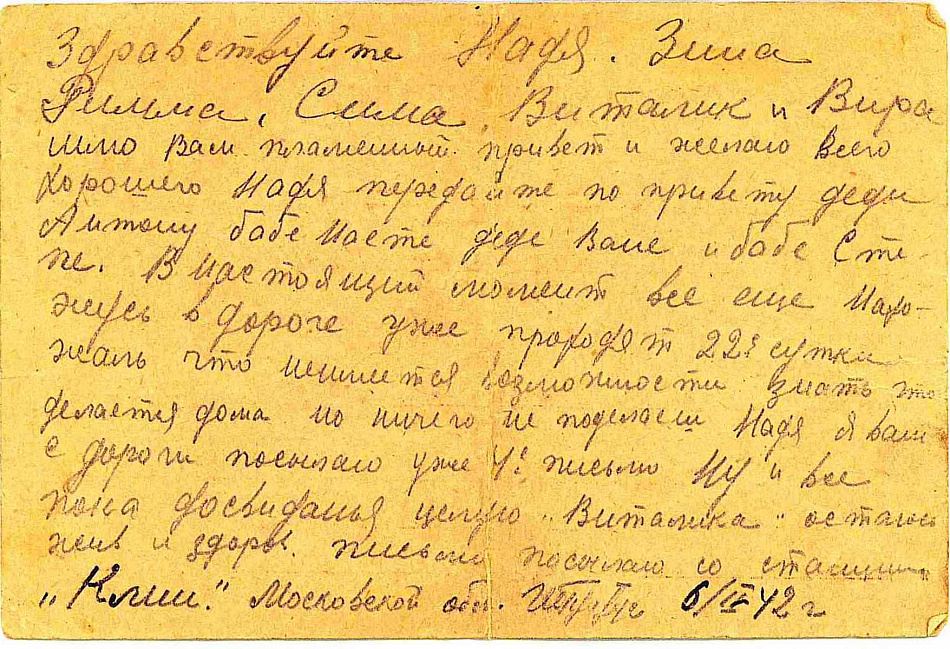 Здравствуйте Надя. Зина
Римма, Сима, Виталик и Вира
шлю Вам пламенный привет и желаю всего
хорошего Надя передайте по привету деди
Антону бабе Насте деде Ване и бабе Сте-
пе. В настоящий момент все еще нахо-
жусь в дороге уже проходят 22е сутки
жаль что неимется возможности знать что
делается дома но ничего не поделаеш Надя я Вам
с дороги посылаю уже 4е письмо Ну и все
пока досвиданья целую „Виталика“ остаюсь
жив и здоров. письмо посылаю со станции
„Клин.“ Московской обл. 6/II-42 г